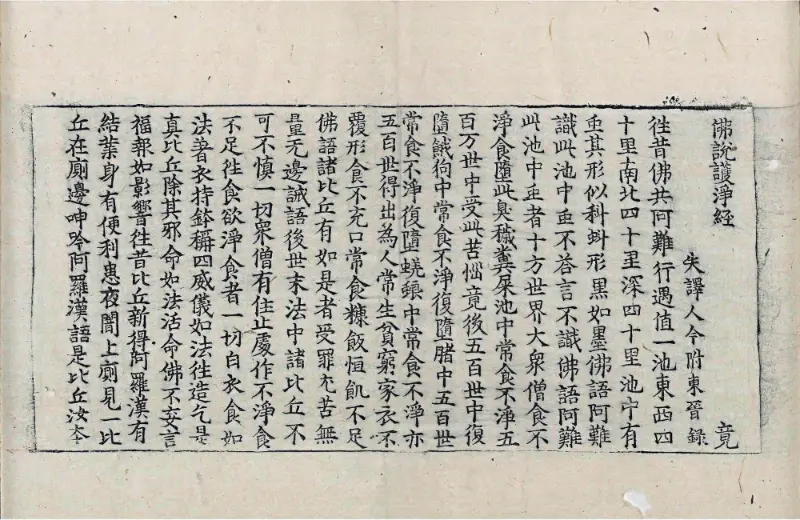 佛說護淨經　竟
失譯人今附東晉錄
往昔佛共阿難行遇值一池東西四
十里南北四十里深四十里池中有
虫其形似科蚪形黒如墨佛語阿難
識此池中虫不荅言不識佛語阿難
此池中虫者十方世界大衆僧食不
淨食墮此臭穢糞屎池中常食不淨五
百万世中受此苦惱竟後五百世中復
墮餓狗中常食不淨復墮猪中五百世
常食不淨復墮蜣蜋中常食不淨亦
五百世得出為人常生貧窮家衣不
覆形食不充口常食糠飯恒飢不足
佛語諸比丘有如是者受罪尤苦無
量无邊誡語後世末法中諸比丘不
可不慎一切衆僧有住止處作不淨食
不足往食欲淨食者一切白衣食如
法著衣持鉢稱四威儀如法往造乞是
真比丘除其邪命如法活命佛不妄言
福報如影響往昔比丘新得阿羅漢有
結業身有便利患夜闇上廁見一比
丘在廁邊呻吟阿羅漢語是比丘汝夲